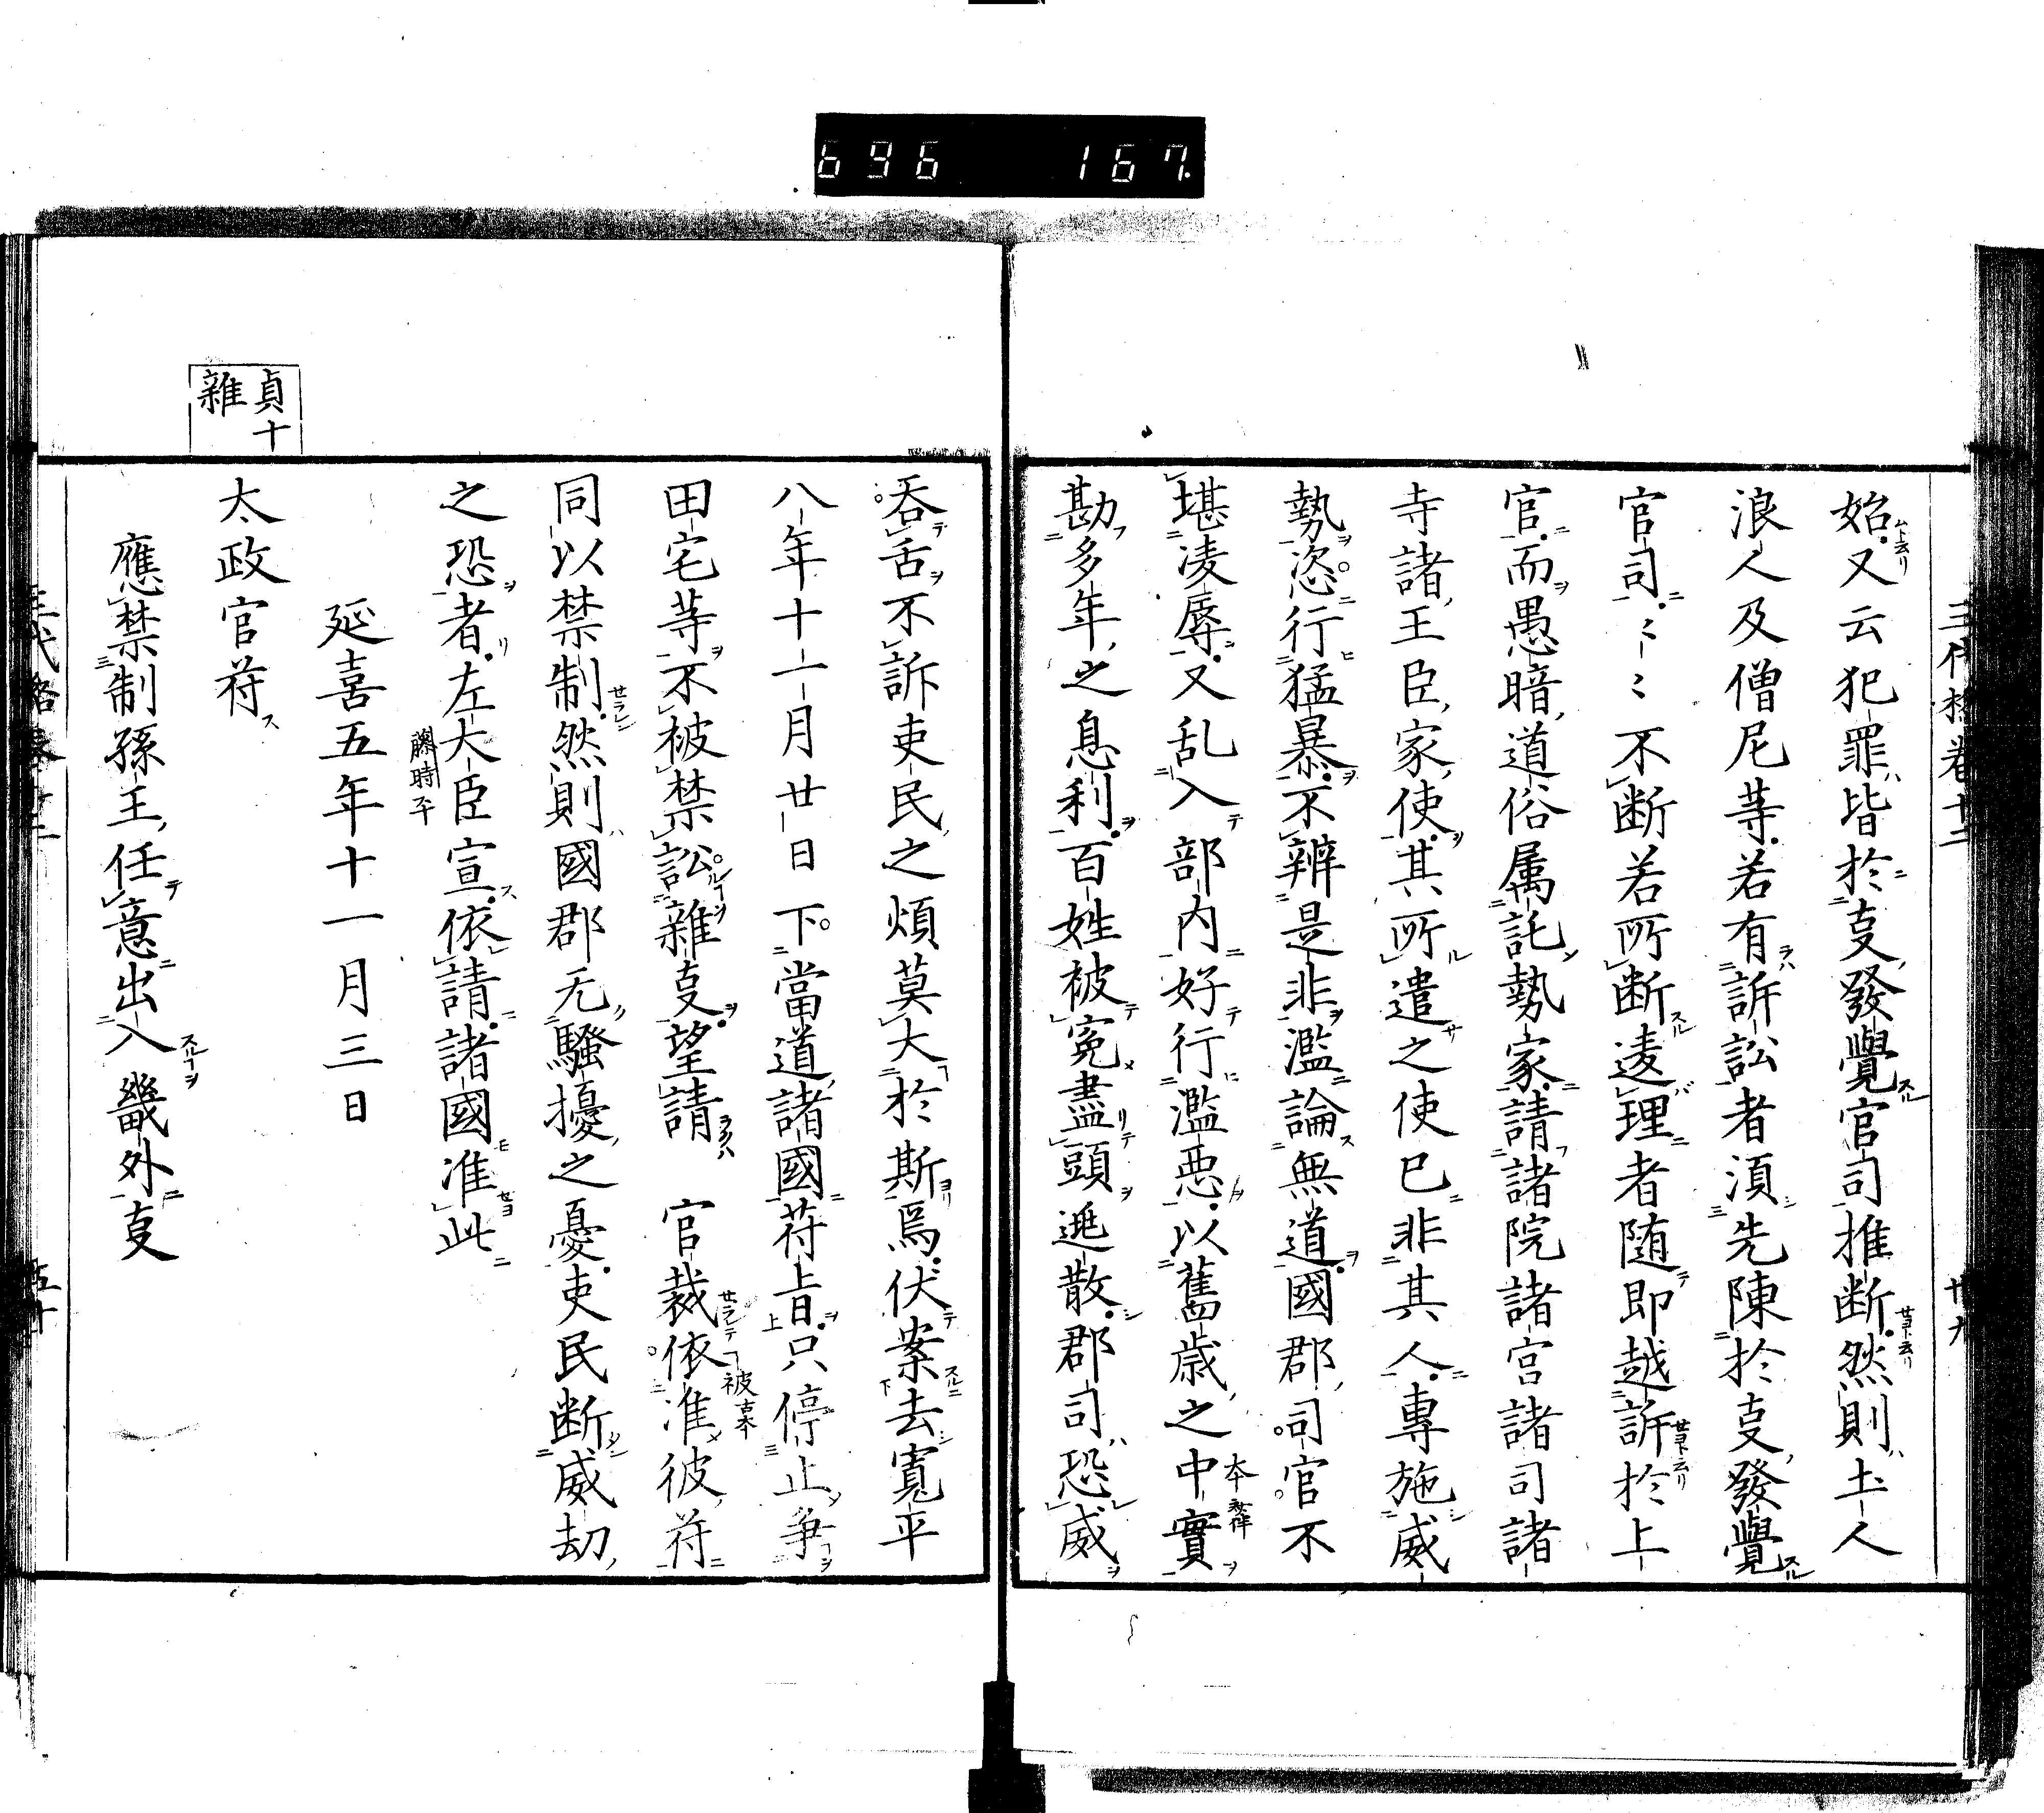 696 167
始又云犯罪皆於叓發覺官司推断然則土人
浪人及僧尼等若有訴訟者湏先陳於叓發覺
官司〻〻不断若所断凌理者随即越訴於上
官而愚暗道俗属託勢家請諸院諸宮諸司諸
寺諸王臣家使其所遣之使已非其人專施威
勢恣行猛暴不辨是非濫論無道國郡司官不
堪凌辱又乱入部内好行濫惡以舊歳之中實
勘多年之息利百姓被寃盡頭逃散郡司恐威
吞舌不訴吏民之煩莫大於斯焉伏案去寛平
八年十一月廿日下當道諸國苻旨只停止爭
田宅等不被禁訟雜叓望請 官裁依准彼苻
同以禁制然則國郡无騷擾之憂吏民断威劫
之恐者左大臣宣依請諸國准此
藤時平
延喜五年十一月三日
貞十
雜
太政官苻
應禁制孫王任意出入畿外叓